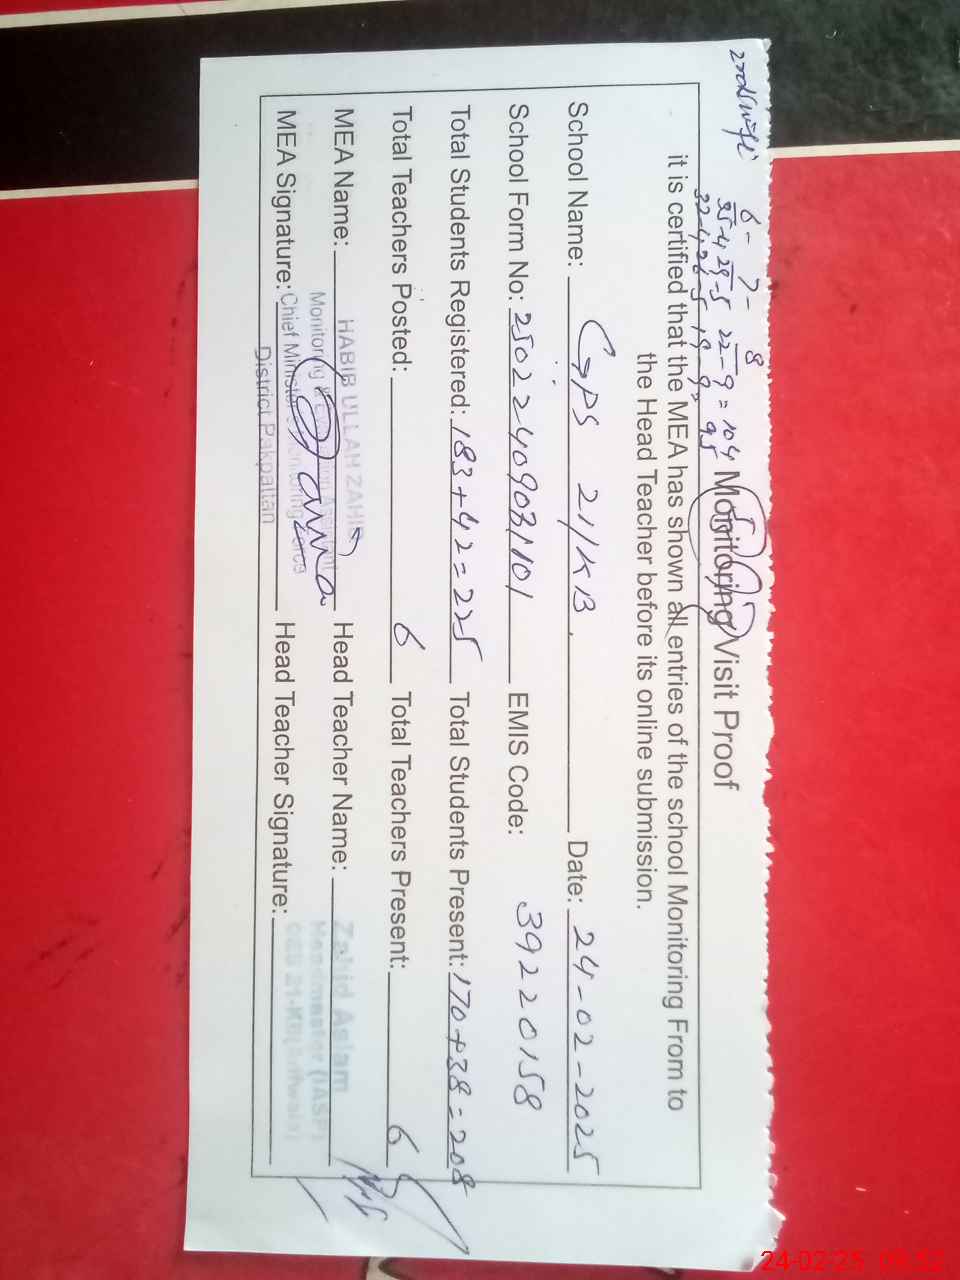 6- 7- 8
35-4 29-5 22-9 = 104
32-4 26-5 19-9 95
Monitoring Visit Proof
it is certified that the MEA has shown all entries of the school Monitoring From to
the Head Teacher before its online submission.
School Name: GPS 21/KB. Date: 24-02-2025
School Form No: 25022409031101 EMIS Code: 39220158
Total Students Registered: 183+42=225 Total Students Present: 170+38=208
Total Teachers Posted: 6 Total Teachers Present: 6
MEA Name: HABIB ULLAH ZAHID Head Teacher Name: Zahid Aslam
Monitoring & Evaluation Assistant Headmaster (IASP)
MEA Signature: Chief Minister's Monitoring Force Head Teacher Signature:
District Pakpattan
24-02-25